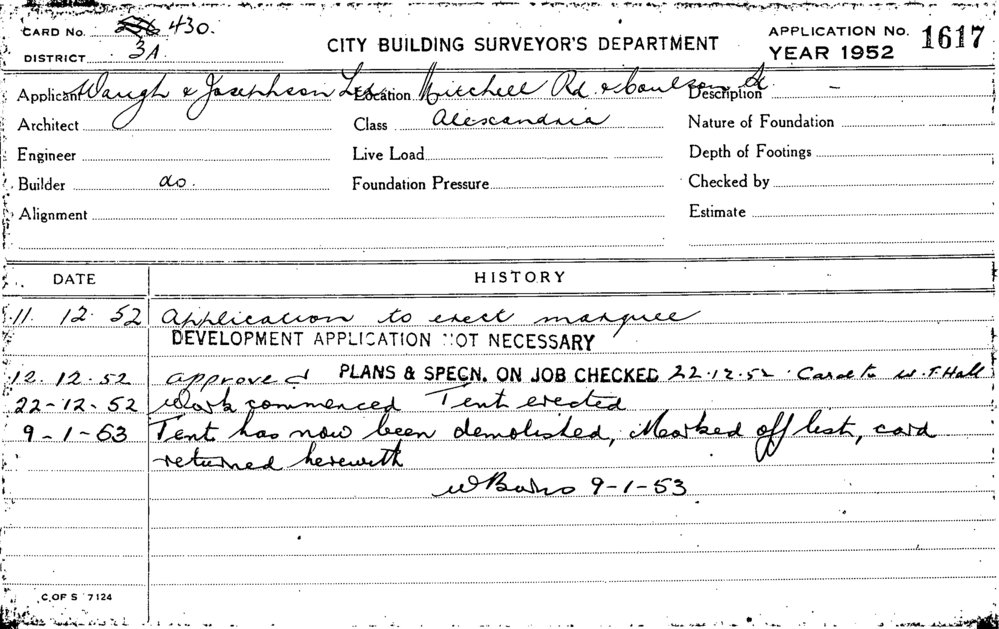 CARD No. 430.
DISTRICT 3A
CITY BUILDING SURVEYOR'S DEPARTMENT
APPLICATION No. 1617
YEAR 1952
Applicant Waugh & Josephson Location Mitchell Rd & Coulson St Description -
Architect Class Alexandria Nature of Foundation
Engineer Live Load Depth of Footings
Builder do. Foundation Pressure Checked by
Alignment Estimate
DATE HISTORY
11. 12. 52 Application to erect marquee
DEVELOPMENT APPLICATION NOT NECESSARY
12. 12. 52 approved PLANS & SPECN. ON JOB CHECKED 22.12.52. Card to W. F. Hall
22-12-52 Work commenced Tent erected
9-1-53 Tent has now been demolished, Marked off list, card
returned herewith
9-1-53
C. OF S 7124